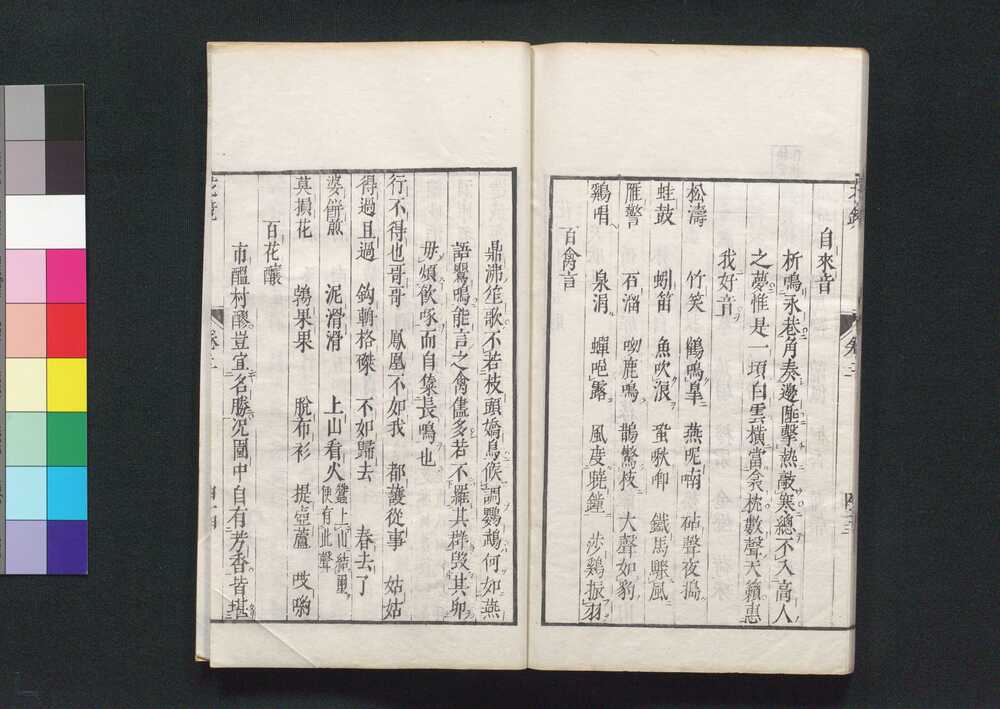 自來音
析鳴永巷角奏邊陲擊熱敲寒總不入高人
之夢惟是一項白雲橫當衾枕數聲天籟惠
我好音
松濤 竹笑 鶴鳴皐 燕呢喃 砧聲夜搗
蛙鼓 蚓笛 魚吹浪 蛩啾唧 鐵馬驟風
雁警 石溜 呦鹿鳴 鵲驚枝 犬聲如豹
鷄唱 泉涓 蟬咽露 風度疎鐘 莎鷄振羽
百禽言
鼎沸笙歌不若枝頭嬌鳥候調鸚鵡何如燕
語鸎鳴能言之禽儘多若不羅其群毀其卵
毋煩飲啄而自集長鳴也
行不得也哥哥 鳳凰不如我 都護從事 姑姑
得過且過 鈎輈格磔 不如歸去 春去了
婆餅煎 泥滑滑 上山看火 蠶上山結璽便有此聲
莫損花 鶉果果 脫布衫 提壺蘆 哎喲
百花釀
市醞村醪豈宜名勝况園中自有芳香皆堪
卷二